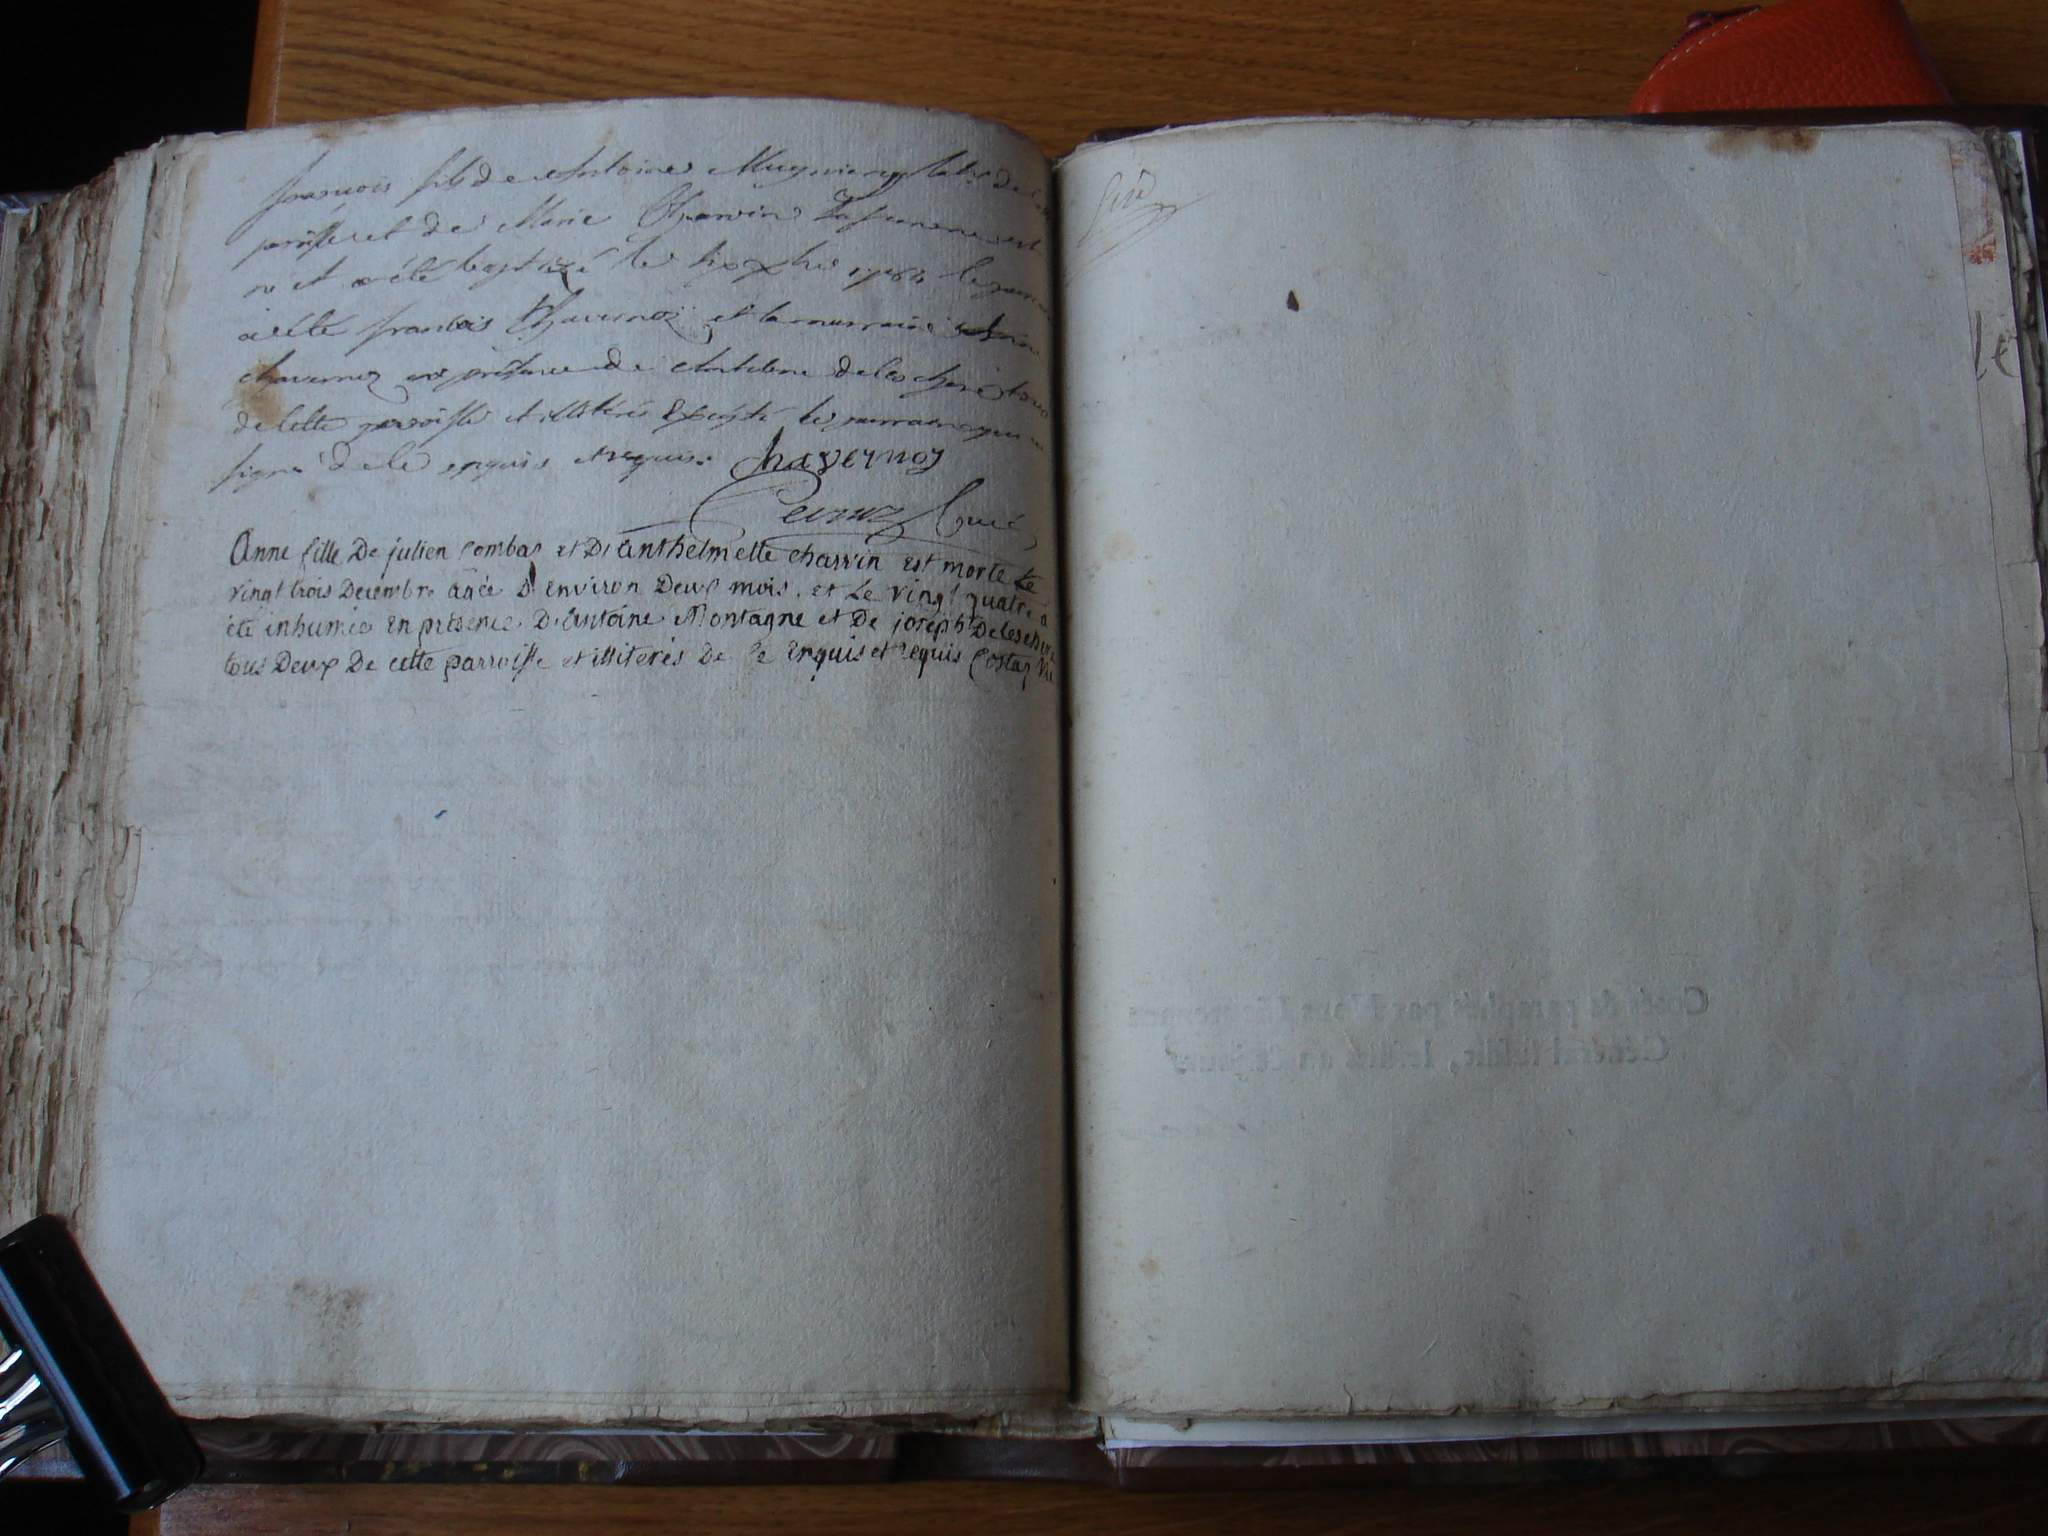 françois fils de Antoine Mugnier lab.r de
parroisse et de Marie Charvin sa femme est
né et a été baptisé le six xbre 1764 le
a été francois Chavernoz et la marraine
chavernoz en présence de Anthelme
de cette parroisse et illitérés Excepté le parrain qui a
signé de ce enquis et requis. Chavernoy
Curé
Anne fille De julien Combaz et D'anthelmette charvin est morte Le
vingt trois Decembre agée D'environ Deux mois, et Le vingt quatre a
été inhumée En présence D'antoine Montagne et De joseph
tous Deux De cette parroisse et illiterés De ce Enquis et requis Costaz Vic